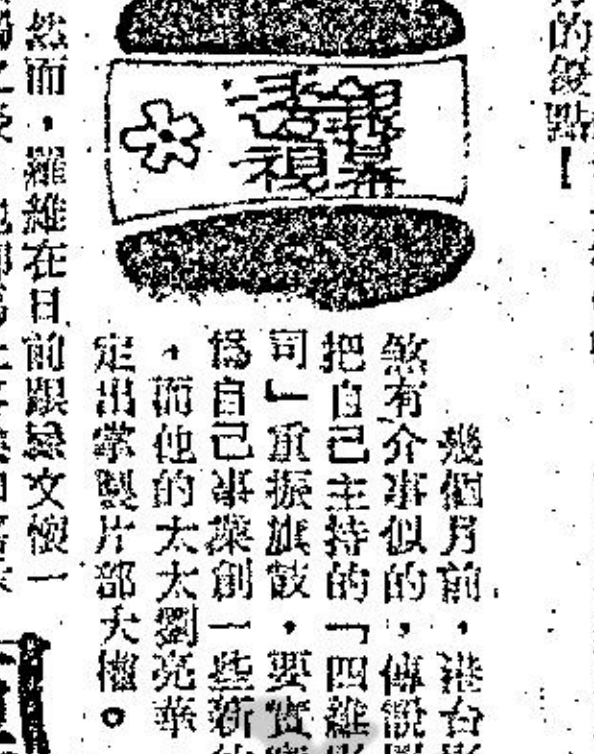 的優點！
銀幕
透視
幾個月前，港台
煞有介事似的，傳說
把自己主持的「四維
司」重振旗鼓，要實
爲自己事業創一些新
，而他的太太劉亮華
定出掌製片部大權。
然而，羅維在目前跟鄒文懷一